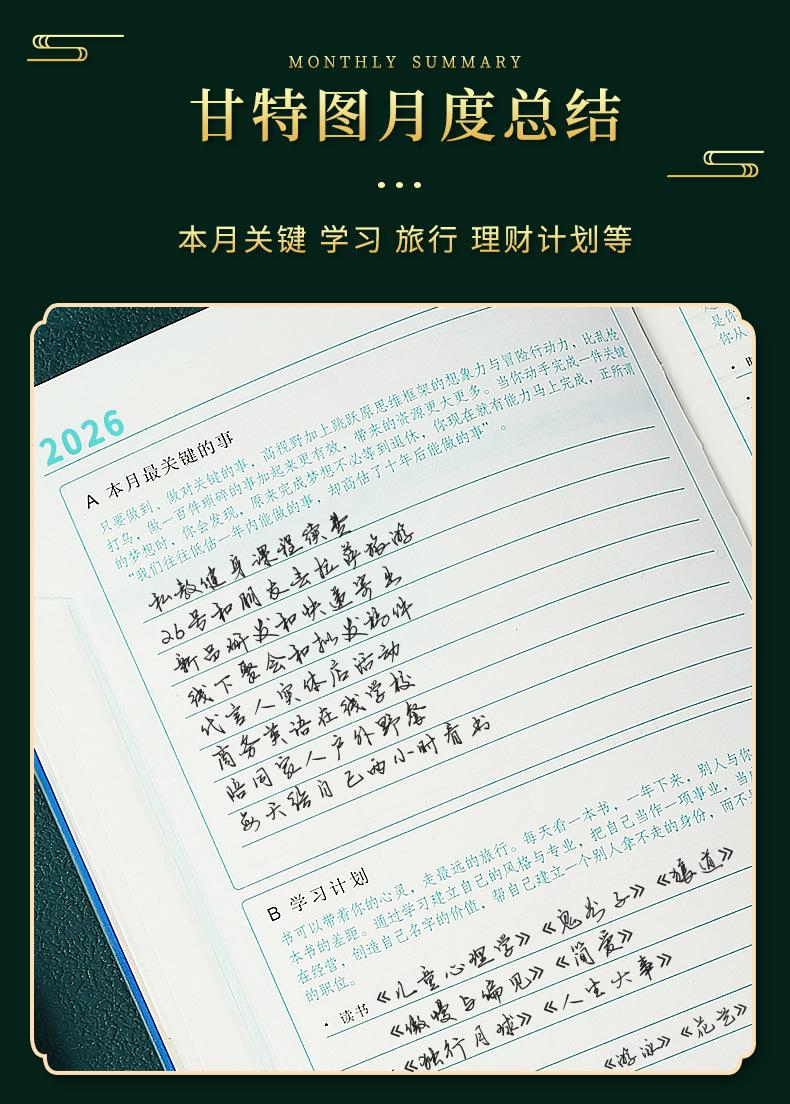 MONTHLY SUMMARY
甘特图月度总结
本月关键 学习 旅行 理财计划等
是你
你从
2026
A 本月最关键的事
只要做到、做对关键的事，高视野加上跳跃原思维框架的想象力与冒险行动力，比乱枪
打鸟，做一百件琐碎的事加起来更有效，带来的资源更大更多。当你动手完成一件关键
的梦想时，你会发现，原来完成梦想不必等到退休，你现在就有能力马上完成，正所谓
“我们往往低估一年内能做的事，却高估了十年后能做的事”。
私教健身课程续费
26号和朋友去拉萨旅游
新品研发和快递寄出
线下聚会和批发物件
代言人实体店活动
商务英语在线学校
陪同家人户外野餐
每天给自己两小时看书
B 学习计划
书可以带着你的心灵，走最远的旅行。每天看一本书，一年下来，别人与你
本书的差距。通过学习建立自己的风格与专业，把自己当作一项事业，当
在经营，创造自己名字的价值，帮自己建立一个别人拿不走的身份，而不
的职位。
• 读书 《儿童心理学》《鬼谷子》《 道》
《傲慢与偏见》《简爱》
《独行月球》《人生大事》
《游泳》《花艺》